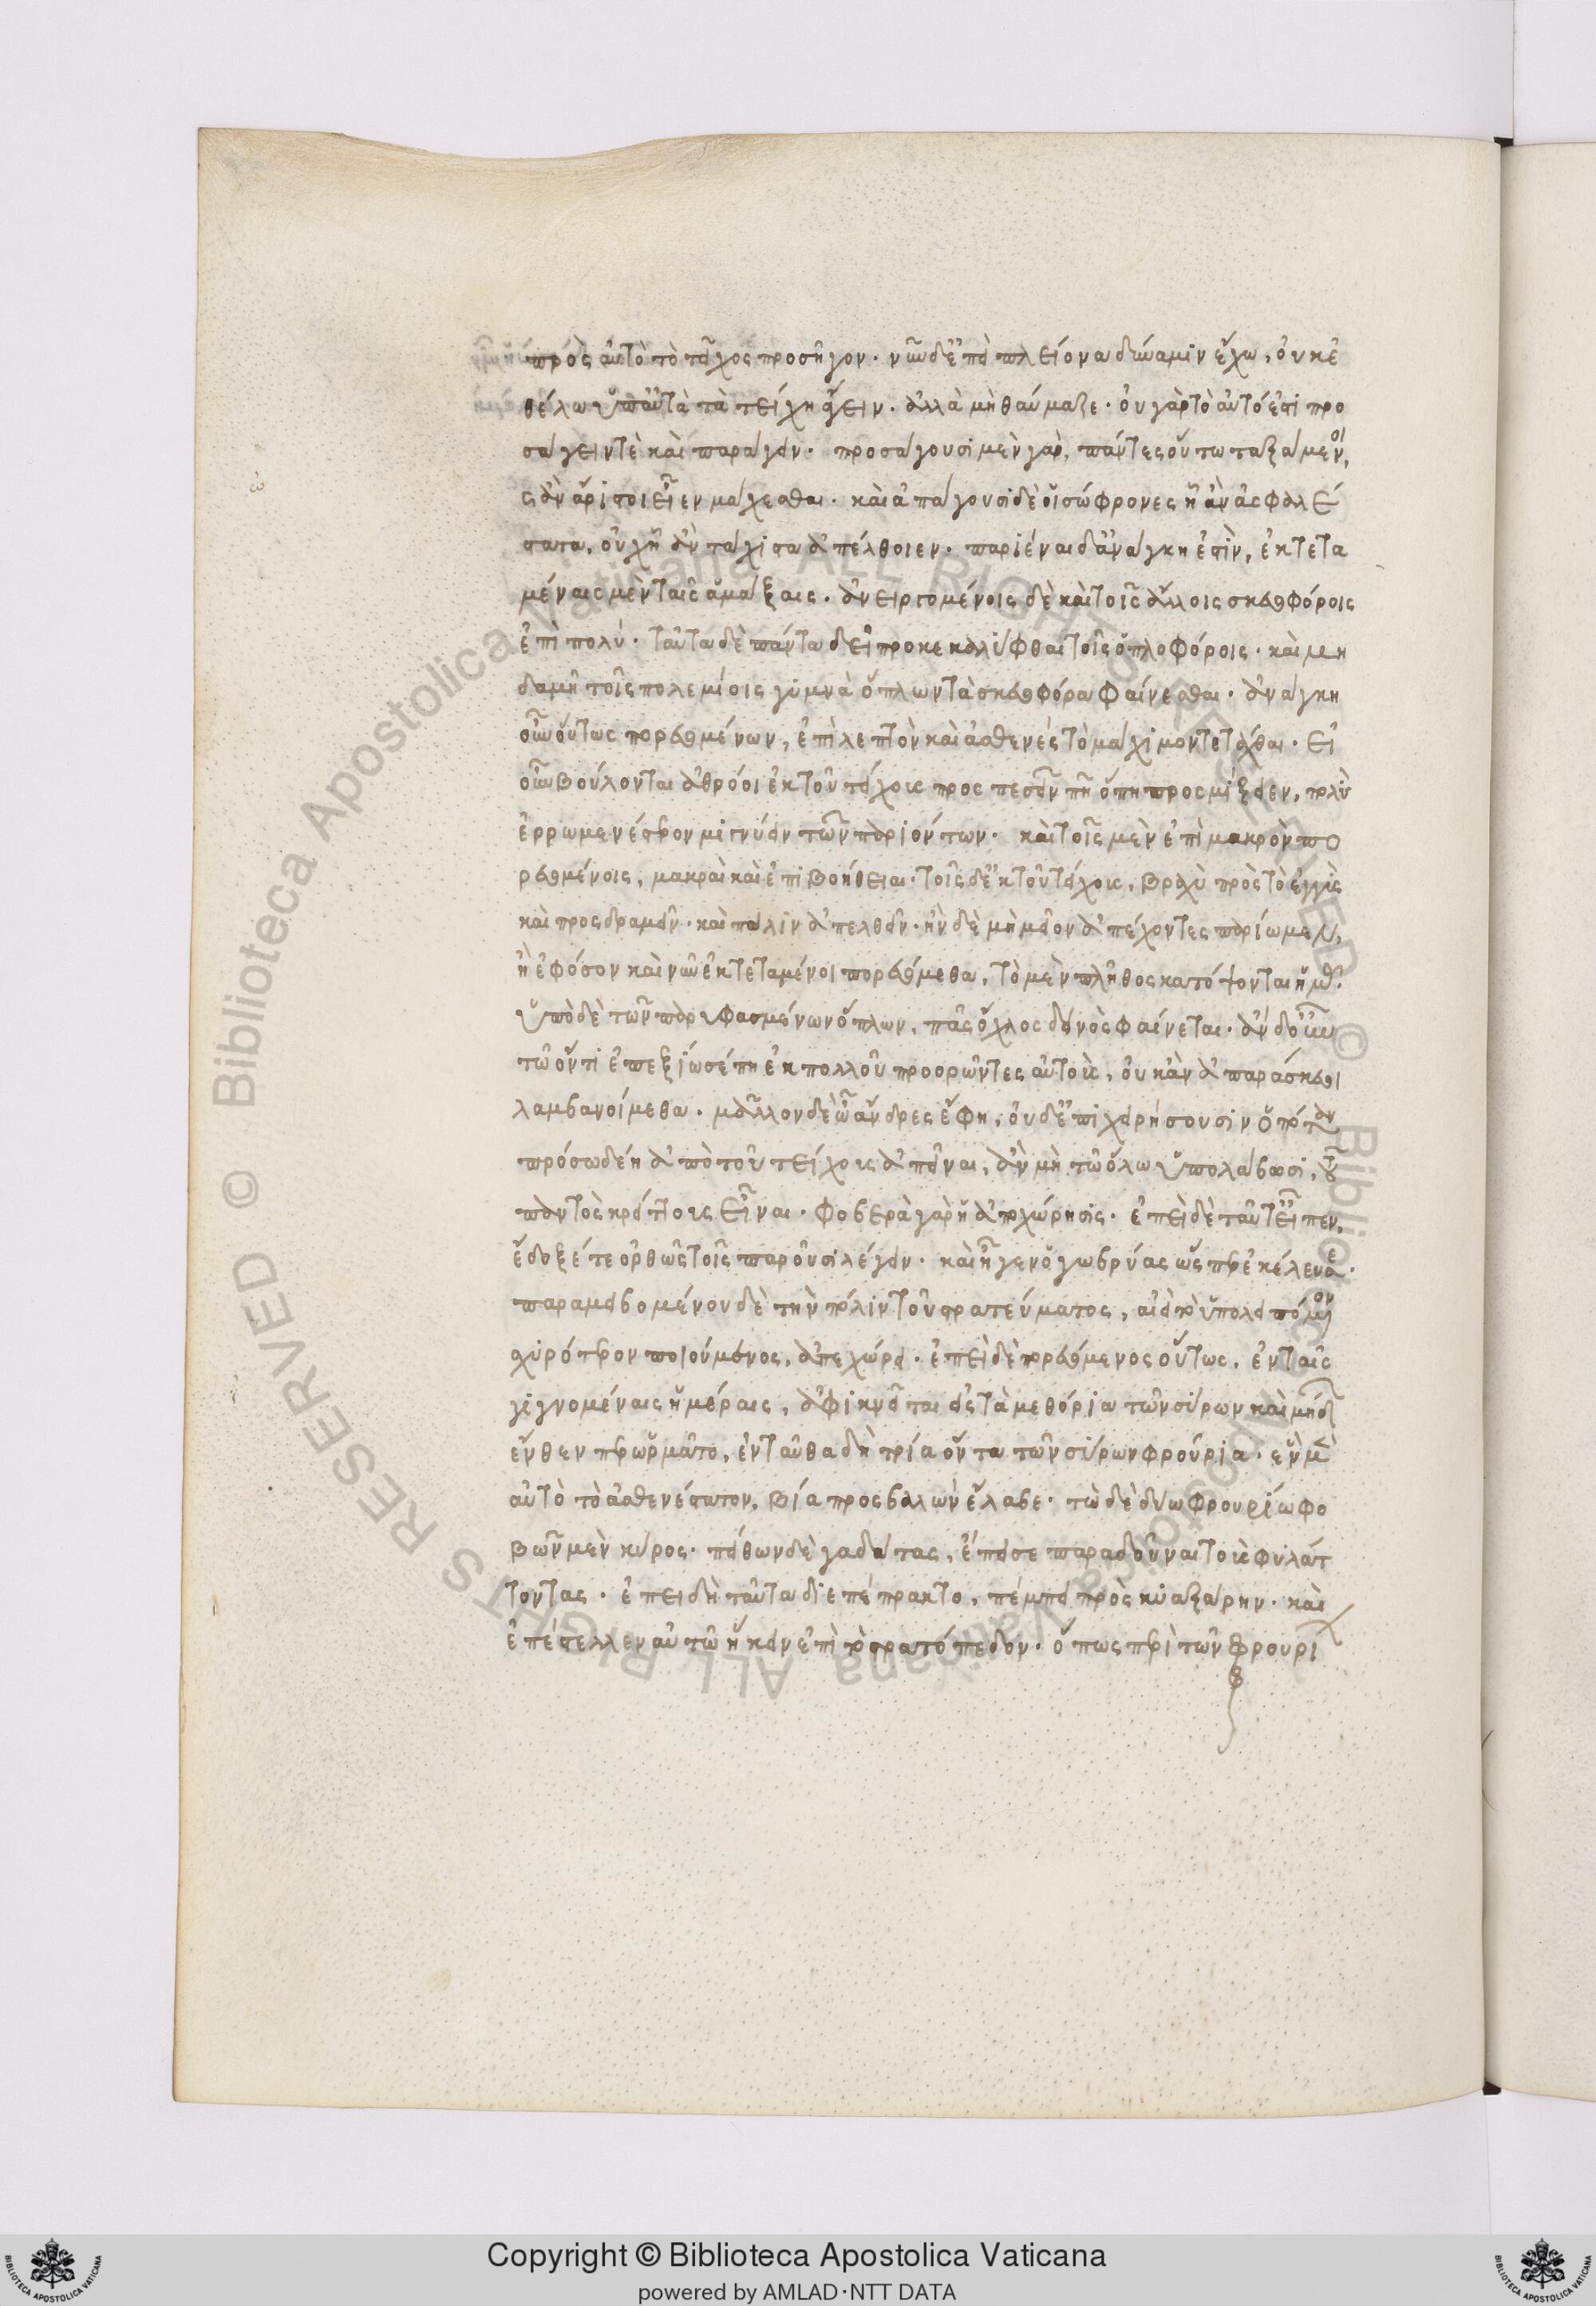 πρὸς αὐτὸ τὸ τεῖχος προσῆγον· νῦν δ' ἐπεὶ πλείονα δύναμιν ἔχω, οὐκ ἐ
θέλω ὑπ' αὐτὰ τὰ τείχη ἄγειν· ἀλλὰ μὴ θαύμαζε· οὐ γὰρ τὸ αὐτό ἐστι προ
σάγειν τὲ καὶ παράγειν· προσάγουσι μὲν γὰρ, πάντες οὕτω ταξάμενοι,
ὡς ἂν ἄριστοι εἶεν μάχεσθαι· καὶ ἀπάγουσι δὲ οἱ σώφρονες ᾗ ἂν ἀσφαλέ
στατα, οὐχ ᾗ ἂν τάχιστα ἀπέλθοιεν· παριέναι δ' ἀνάγκη ἐστὶν, ἐκτετα
μέναις μὲν ταῖς ἁμάξαις. ἀνειργομένοις δὲ καὶ τοῖς ἄλλοις σκευοφόροις
ἐπὶ πολύ· ταῦτα δὲ πάντα δεῖ προκεκαλύφθαι τοῖς ὁπλοφόροις· καὶ μη
δαμῆ τοῖς πολεμίοις γυμνὰ ὅπλων τὰ σκευοφόρα φαίνεσθαι· ἀνάγκη
οὖν οὕτως πορευομένων, ἐπὶ λεπτὸν καὶ ἀσθενὲς τὸ μάχιμον τετάχθαι· εἰ
οὖν βούλονται ἀθρόοι ἐκ τοῦ τείχους προσπεσεῖν πῆ ὅπη προσμίξειεν, πολὺ
ἐρρωμενέστερον μιγνύειν τῶν παριόντων· καὶ τοῖς μὲν ἐπὶ μακρὸν πο
ρευομένοις, μακραὶ καὶ ἐπιβοήθειαι· τοῖς δ' ἐκ τοῦ τείχους, βραχὺ πρὸς τὸ ἐγγὺς
καὶ προσδραμεῖν· καὶ πάλιν ἀπελθεῖν· ἢν δὲ μὴ μεῖον ἀπέχοντες παρίωμεν,
ἢ ἐφ' ὅσον καὶ νῦν ἐκτεταμένοι πορευόμεθα, τὸ μὲν πλῆθος κατόψονται ἡμῶν·
ὑπὸ δὲ τῶν παρυφασμένων ὅπλων, πᾶς ὄχλος δεινὸς φαίνεται· ἂν δ' οὖν
τῷ ὄντι ἐπεξίωσέ πη ἐκ πολλοῦ προορῶντες αὐτοὺς, οὐκ ἂν ἀπαράσκευοι
λαμβανοίμεθα· μᾶλλον δὲ ὦ ἄνδρες ἔφη, οὐδ' ἐπιχειρήσουσιν ὁπόταν
πρόσω δέῃ ἀπὸ τοῦ τείχους ἀπιέναι, ἂν μὴ τῷ ὅλῳ ὑπολάβωσι, τοῦ
παντὸς κρείττους εἶναι· φοβερὰ γὰρ ἡ ἀποχώρησις· ἐπεὶ δὲ ταῦτ' εἶπεν,
ἔδοξέ τε ὀρθῶς τοῖς παροῦσι λέγειν· καὶ ἦγεν ὁ γωβρύας ὥσπερ ἐκέλευσε·
παραμειβομένου δὲ τὴν πόλιν τοῦ στρατεύματος, αἰεὶ τὸ ὑπολειπόμενον
ἰσχυρότερον ποιούμενος, ἀπεχώρει· ἐπεὶ δὲ πορευόμενος οὕτως, ἐν ταῖς
γιγνομέναις ἡμέραις, ἀφικνεῖται εἰς τὰ μεθόρια τῶν σύρων καὶ μήδων
ἔνθεν περ ὡρμᾶτο, ἐνταῦθα δὴ τρία ὄντα τῶν σύρων φρούρια· ἓν μὲν
αὐτὸ τὸ ἀσθενέστατον, βίᾳ προσβαλὼν ἔλαβε· τὼ δὲ δύω φρουρίω φο
βῶν μὲν κύρος· πείθων δὲ γαδάτας, ἔπεισε παραδοῦναι τοὺς φυλάτ
τοντας· ἐπειδὴ ταῦτα διεπέπρακτο, πέμπει πρὸς κυαξάρην· καὶ
ἐπέστελλεν αὐτῷ ἥκειν ἐπὶ τὸ στρατόπεδον· ὅπως περὶ τῶν φρουρί
Copyright © Biblioteca Apostolica Vaticana
powered by AMLAD·NTT DATA